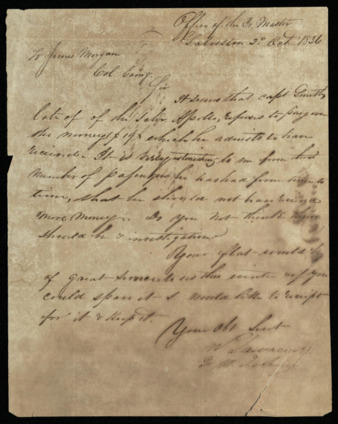 Office of the Qr Master
Galveston 3d Oct 1836
To James Morgan
Col Comg
Sir
It seems that capt Smith
late of the Schr Apollo, refuses to pay over
the money of 19$ which he admits to have
received. It is to me from the
number of passengers he has had from time to
time, that he should not have received
more money. Do you not think there
should be investigation
Your flat would be
of great service us this and if you
could spare it I would like to receipt
for it & keep it.
Your Obt Servt